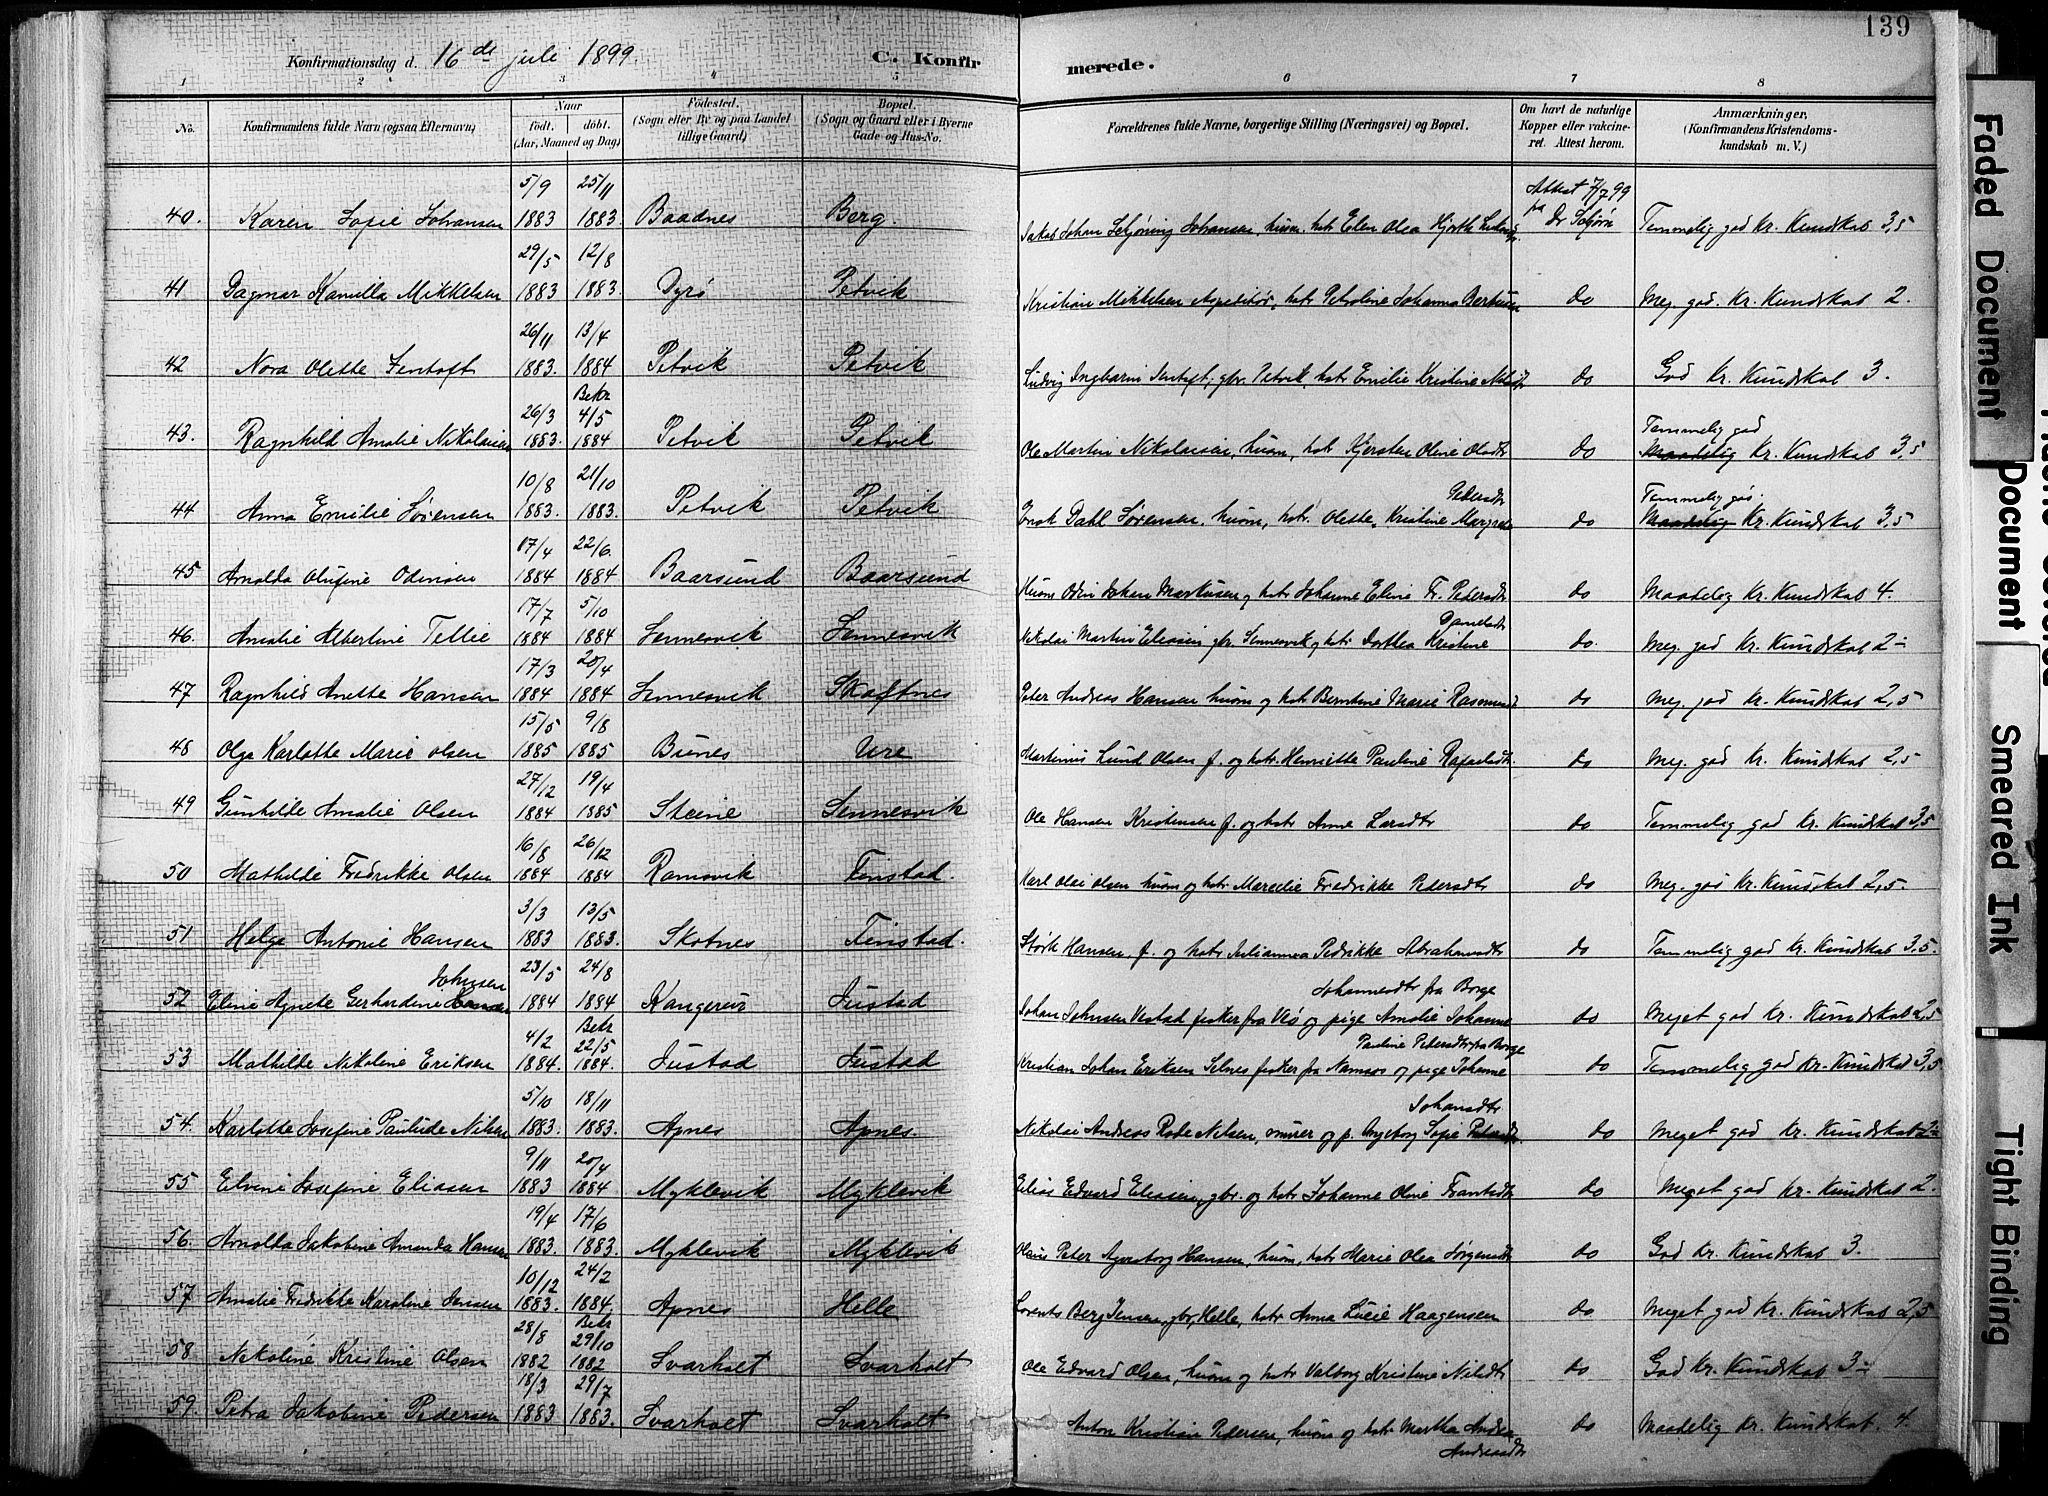 139
Konfirmationsdag d. 16de juli 1899.
C. Konfirmerede.
1 2 3 4 5 6 7 8
No.
Konfirmandens fulde Navn (ogsaa Efternavn)
Naar
født. døbt.
(Aar, Maaned og Dag)
Fødested.
(Sogn eller By og paa Landet
tillige Gaard)
Bopæl.
(Sogn og Gaard eller i Byerne
Gade og Hus-No.
Forældrenes fulde Navne, borgerlige Stilling (Næringsvei) og Bopæl.
Om havt de naturlige
Kopper eller vakcine-
ret. Attest herom.
Anmærkninger,
(Konfirmandens Kristendoms-
kundskab m. V.)
40. Karen Sofie Johansen 5/9 1883 25/11 1883. Baadnes Berg. Jakob Johan Schjøning Johansen, husm. hstr Elen Olea Hjorth Attest 7/7 99 fra Dr Schjørn Temmelig god Kr. Kundskab 3,5
41 Dagmar Kamilla Mikkelsen 29/5 1883 12/8 1883. Dyrø Petvik Kristian Mikkelsen hstr Petroline Johanna do Meg. god. Kr. Kundskab 2.
42 Nora Olette Jentoft 26/11 1883. 13/4 1884 Petvik Petvik Ludvig Ingbarm Jentoft, gbr. Petvik, hstr Emilie Kristine do God Kr. Kundskab 3.
43. Ragnhild Amalie Nikolaisen 26/3 1883. Bekr 4/5 1884 Petvik Petvik Ole Martin Nikolaisen, husm, hstr Kjersten Oline Olsdtr do Temmelig god Maadelig Kr. Kundskab 3,5
44 Anna Emilie Sørensen 10/8 1883. 21/10 1883. Petvik Petvik Enok Dahl Sørensen, husm, hstr. Olette Kristine Margrete Pedersdtr do Temmelig god. Maadelig Kr. Kundskab 3,5
45 Arnolda Olufine Odinsen 17/4 1884 22/6. 1884 Baarsund Baarsund Husm Odin Johan Markusen og hstr Johanne Eline Fr. Pedersdtr do Maadelig Kr. Kundskab 4.
46. Amalie Albertine Tellie 17/7 1884 5/10 1884 Sennesvik Sennesvik Nikolai Martin Eliasen gbr. Sennesvik og hstr Dorthea Kristine Danielsdtr do. Meg. god Kr. Kundskab 2-
47 Ragnhild Anette Hansen 17/3 1884 20/4 1884 Sennesvik Skaftnes Peter Andreas Hansen husm og hstr Berntine Marie Rasmusd do Meg. god Kr. Kundskab 2,5
48 Olga Karlotte Marie Olsen 15/5 1885 9/8 1885 Bunes Ure Martinus Lund Olsen f. og hstr. Henriette Pauline Rafaelsdtr. do Meg. god Kr. Kundskab 2,5
49 Gunhilde Amalie Olsen 27/12 1884 19/4 1885 Steine Sennesvik Ole Hansen Kristensen f. og hstr Anne Larsdtr do Temmelig god Kr. Kundskab 3,5
50 Mathilde Fredrikke Olsen 16/8 1884 26/12 1884 Ramsvik Finstad. Karl Olai Olsen husm og hstr Marselie Fredrikke Pedersdtr do Meg. god Kr. Kundskab 2,5.
51 Helga Antonie Hansen 3/3 1883 13/5 1883. Skotnes Finstad. Størk Hansen, f. og hstr Julianna Pedrikke Abrahamsdtr do Temmelig god Kr. Kundskab 3,5.
52 Eline Agnete Gerhardine Johnsen 23/5 1884 24/8 1884 Kangerur Justad Johan Johnsen Vestad fisker fra Veø og pige Amalie Johanne Johannesdtr fra Borge do Meget god Kr. Kundskab 2,5
53 Mathilde Nikoline Eriksen 4/2 1884. Bekr 22/5 1884. Justad Justad Kristian Johan Eriksen Selnes fisker fra Namsos og pige Johanne Pauline Pedersdtr fra Borge do Temmelig god Kr. Kundskab 3,5
54. Karlotte Josefine Paulide Nilsen 5/10 1883. 18/11 1883. Apnes Apnes. Nikolai Andreas Rode Nilsen, murer og p. Ingeborg Sofie Johansdtr do Meget god Kr. Kundskab 2-
55 Elvine Josefine Eliasen 9/11 1883 20/4 1884 Myklevik Myklevik Elias Edvard Eliasen, gbr. og hstr Johanne Oline Frantsdtr do Meget god Kr. Kundskab 2.
56. Arnolda Jakobine Amanda Hansen 19/4 1883. 17/6 1883. Myklevik Myklevik Olaus Peter Hansen, husm, hstr Marie Olea Jørgensdtr do God Kr. Kundskab 3.
57 Amalie Fredrikke Karoline Jensen 10/12 1883. 24/2 1884. Apnes Helle Lorents Berg Jensen, gbr, Helle, hstr Anna Lucie Haagensen do Meget god Kr. Kundskab 2,5
58 Nikoline Kristine Olsen 28/8 1882 Bekr 29/10 1882 Svarholt Svarholt Ole Edvard Olsen, husm og hstr Valborg Kristine Nilsdtr do God Kr. Kundskab 3-
59. Petra Jakobine Pedersen 18/3 1883 29/7 1883. Svarholt Svarholt Anton Kristian Pedersen, husm og hstr Martha Andrea Andreasdtr do Maadelig Kr. Kundskab. 4.
Faded Document
Document
Smeared Ink
Tight Binding